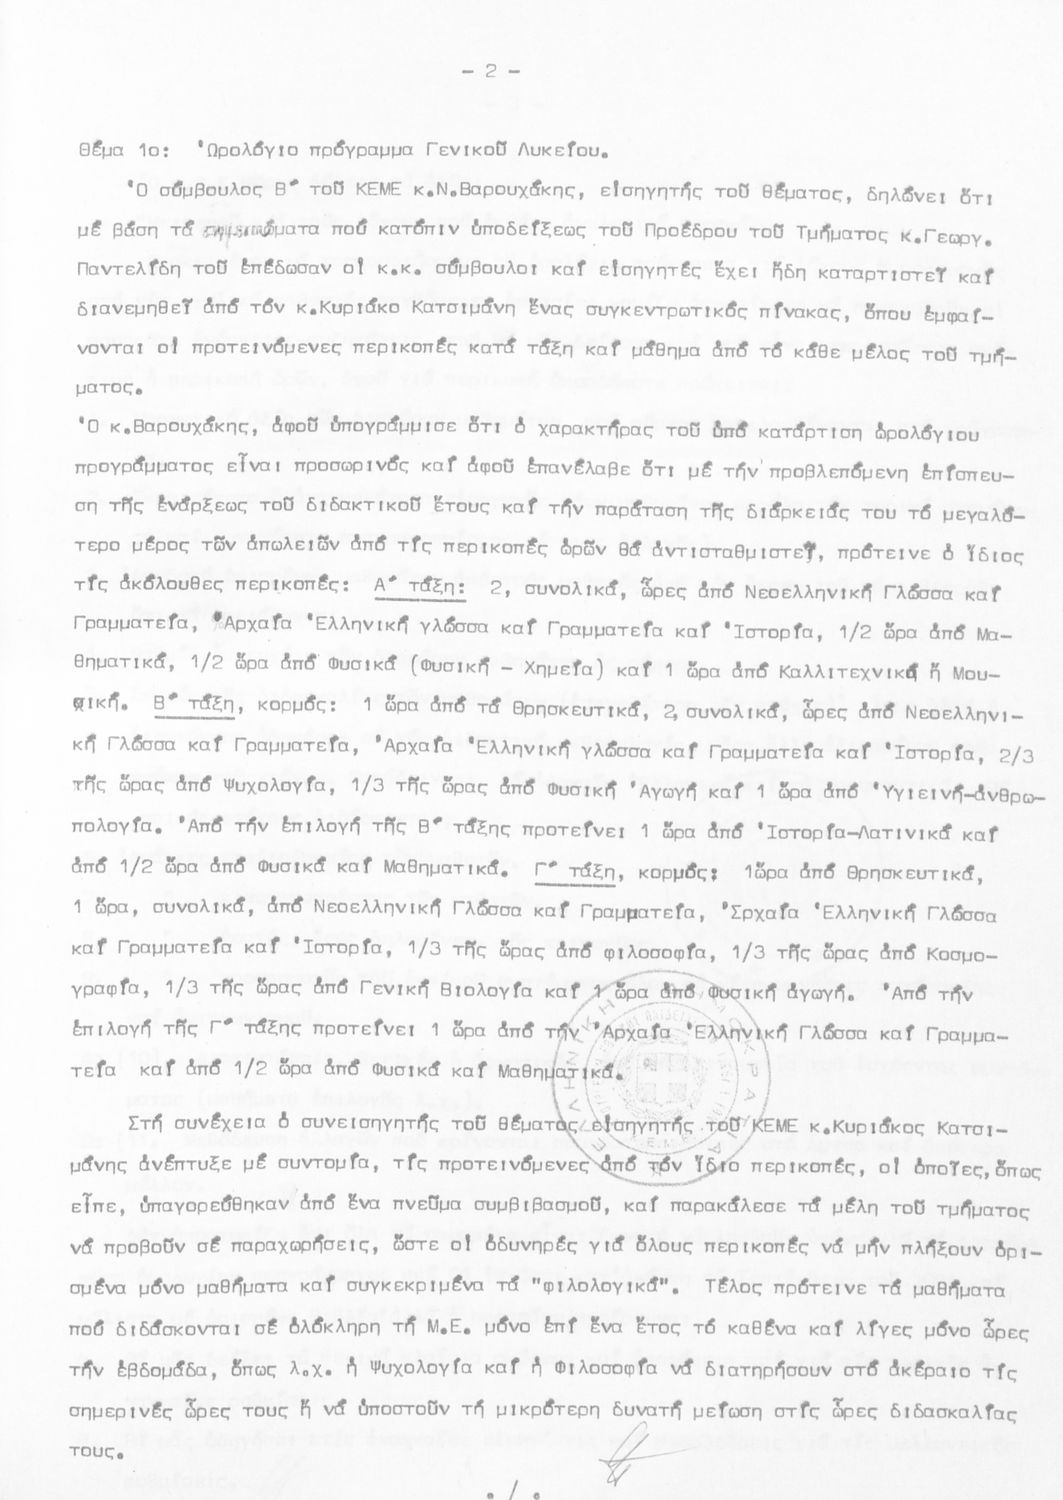 - 2 -
Θέμα 1ο: Ὡρολόγιο πρόγραμμα Γενικοῦ Λυκείου.
Ὁ σύμβουλος Β΄ τοῦ ΚΕΜΕ κ.Ν.Βαρουχάκης, εἰσηγητής τοῦ θέματος, δηλώνει ὅτι
μέ βάση τά σημειώματα πού κατόπιν ὑποδείξεως τοῦ Προέδρου τοῦ Τμήματος κ.Γεωργ.
Παντελίδη τοῦ ἐπέδωσαν οἱ κ.κ. σύμβουλοι καί εἰσηγητές ἔχει ἤδη καταρτιστεῖ καί
διανεμηθεῖ ἀπό τόν κ.Κυριάκο Κατσιμάνη ἕνας συγκεντρωτικός πίνακας, ὅπου ἐμφαί-
νονται οἱ προτεινόμενες περικοπές κατά τάξη καί μάθημα ἀπό τό κάθε μέλος τοῦ τμή-
ματος.
Ὁ κ.Βαρουχάκης, ἀφοῦ ὑπογράμμισε ὅτι ὁ χαρακτήρας τοῦ ὑπό κατάρτιση ὡρολόγιου
προγράμματος εἶναι προσωρινός καί ἀφοῦ ἐπανέλαβε ὅτι μέ τήν προβλεπόμενη ἐπίσπευ-
ση τῆς ἐνάρξεως τοῦ διδακτικοῦ ἔτους καί τήν παράταση τῆς διάρκειάς του τό μεγαλύ-
τερο μέρος τῶν ἀπωλειῶν ἀπό τίς περικοπές ὡρῶν θά ἀντισταθμιστεῖ, πρότεινε ὁ ἴδιος
τίς ἀκόλουθες περικοπές: Α΄ τάξη: 2, συνολικά, ὧρες ἀπό Νεοελληνική Γλῶσσα καί
Γραμματεία, Ἀρχαία Ἑλληνική γλώσσα καί Γραμματεία καί Ἱστορία, 1/2 ὥρα ἀπό Μα-
θηματικά, 1/2 ὥρα ἀπό Φυσικά (Φυσική - Χημεία) καί 1 ὥρα ἀπό Καλλιτεχνικά ἤ Μου-
σική. Β΄ τάξη, κορμός: 1 ὥρα ἀπό τά Θρησκευτικά, 2, συνολικά, ὧρες ἀπό Νεοελληνι-
κή Γλώσσα καί Γραμματεία, Ἀρχαία Ἑλληνική γλώσσα καί Γραμματεία καί Ἱστορία, 2/3
τῆς ὥρας ἀπό Ψυχολογία, 1/3 τῆς ὥρας ἀπό Φυσική Ἀγωγή καί 1 ὥρα ἀπό Ὑγιεινή-ἀνθρω-
πολογία. Ἀπό τήν ἐπιλογή τῆς Β΄ τάξης προτείνει 1 ὥρα ἀπό Ἱστορία-Λατινικά καί
ἀπό 1/2 ὥρα ἀπό Φυσικά καί Μαθηματικά. Γ΄ τάξη, κορμός: 1ὥρα ἀπό Θρησκευτικά,
1 ὥρα, συνολικά, ἀπό Νεοελληνική Γλώσσα καί Γραμματεία, Ἀρχαία Ἑλληνική Γλώσσα
καί Γραμματεία καί Ἱστορία, 1/3 τῆς ὥρας ἀπό φιλοσοφία, 1/3 τῆς ὥρας ἀπό Κοσμο-
γραφία, 1/3 τῆς ὥρας ἀπό Γενική Βιολογία καί 1 ὥρα ἀπό Φυσική ἀγωγή. Ἀπό τήν
ἐπιλογή τῆς Γ΄ τάξης προτείνει 1 ὥρα ἀπό τήν Ἀρχαία Ἑλληνική Γλώσσα καί Γραμμα-
τεία καί ἀπό 1/2 ὥρα ἀπό Φυσικά καί Μαθηματικά.
ΕΛΛΗΝΙΚΗ ΔΗΜΟΚΡΑΤΙΑ
Κ.Ε.Μ.Ε.
Στή συνέχεια ὁ συνεισηγητής τοῦ θέματος εἰσηγητής τοῦ ΚΕΜΕ κ.Κυριάκος Κατσι-
μάνης ἀνέπτυξε μέ συντομία, τίς προτεινόμενες ἀπό τόν ἴδιο περικοπές, οἱ ὁποῖες, ὅπως
εἶπε, ὑπαγορεύθηκαν ἀπό ἕνα πνεῦμα συμβιβασμοῦ, καί παρακάλεσε τά μέλη τοῦ τμήματος
νά προβοῦν σέ παραχωρήσεις, ὥστε οἱ ὀδυνηρές γιά ὅλους περικοπές νά μήν πλήξουν ὁρι-
σμένα μόνο μαθήματα καί συγκεκριμένα τά "φιλολογικά". Τέλος πρότεινε τά μαθήματα
πού διδάσκονται σέ ὁλόκληρη τή Μ.Ε. μόνο ἐπί ἕνα ἔτος τό καθένα καί λίγες μόνο ὧρες
τήν ἑβδομάδα, ὅπως λ.χ. ἡ Ψυχολογία καί ἡ Φιλοσοφία νά διατηρήσουν στό ἀκέραιο τίς
σημερινές ὧρες τους ἤ νά ὑποστοῦν τή μικρότερη δυνατή μείωση στίς ὧρες διδασκαλίας
τους.
./.